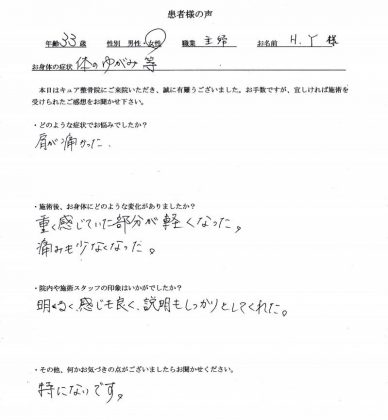 患者様の声
年齢 33 歳 性別 男性・女性 職業 主婦 お名前 H.Y 様
お身体の症状 体のゆがみ 等
本日はキュア整骨院にご来院いただき、誠に有難うございました。お手数ですが、宜しければ施術を
受けられたご感想をお聞かせ下さい。
・どのような症状でお悩みでしたか?
肩が痛かった.
・施術後、お身体にどのような変化がありましたか?
重く感じていた部分が軽くなった。
痛みも少なくなった。
・院内や施術スタッフの印象はいかがでしたか?
明るく、感じも良く、説明もしっかりとしてくれた。
・その他、何かお気づきの点がございましたらお聞かせください。
特にないです。